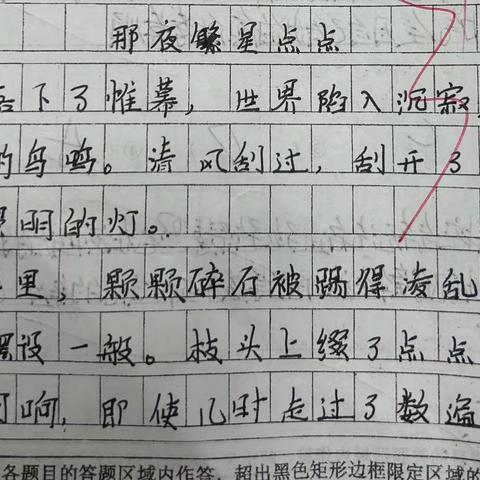 那夜繁星点点
下了帷幕，世界陷入沉寂
的鸟鸣。清风刮过，刮开了
明的灯。
里，颗颗碎石被踢得凌乱
摆设一般。枝头上缀了点点
可响，即使儿时走过了数遍
各题目的答题区域内作答，超出黑色矩形边框限定区域的